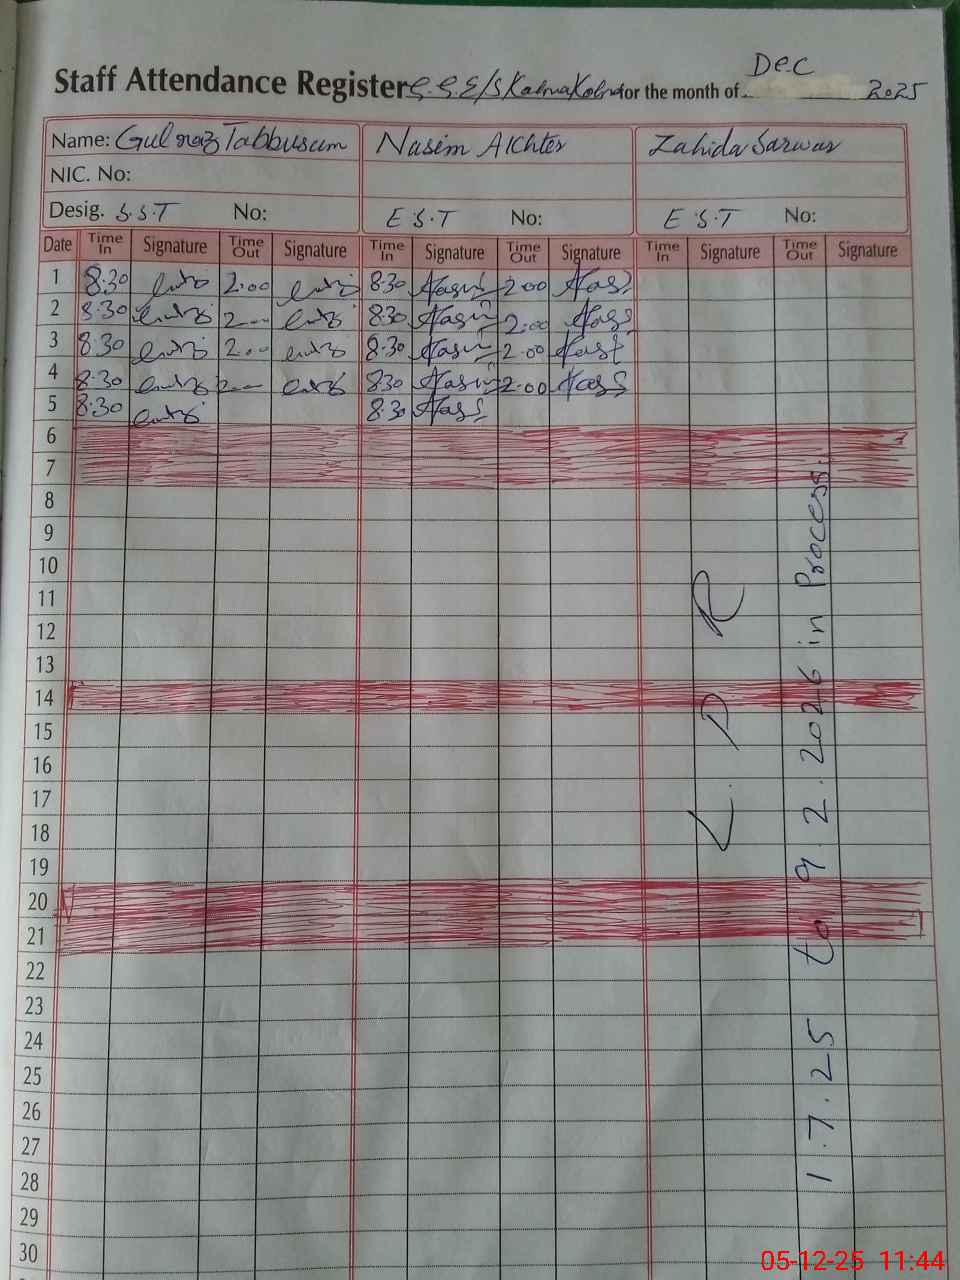 Dec
Staff Attendance Register G.G.E/S for the month of 2025
Name: Gulnaz Tabbusum Nasim Akhter Zahida Sarwar
NIC. No:
Desig. S.S.T No: E S.T No: E S.T No:
Date Time In Signature Time Out Signature Time In Signature Time Out Signature Time In Signature Time Out Signature
1 8:30 2:00 8:30 2:00
2 8:30 2:00 8:30 2:00
3 8:30 2:00 8:30 2:00
4 8:30 2:00 8:30 2:00
5 8:30 8:30
6
7
8
9
10
11
12
13
14
15
16
17
18
19
20
21
22
23
24
25
26
27
28
29
30
L.P R
1.7.25 to 9.2.2026 in Process.
05-12-25 11:44